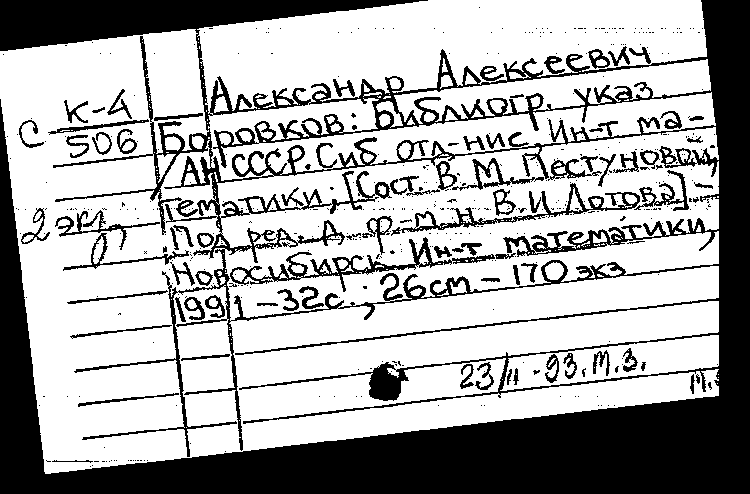 Александр Алексеевич
С К-4
506
Боровков: Библиогр. указ.
/ АН СССР. Сиб. отд-ние, Ин-т ма-
тематики; [Сост. В М. Пестуновой;
2 экз
Под ред. д. ф-м. н. В. И Лотова] -
Новосибирск. Ин-т математики,
1991 - 32с.; 26cm. - 170 экз
23/II - 93. м.з.